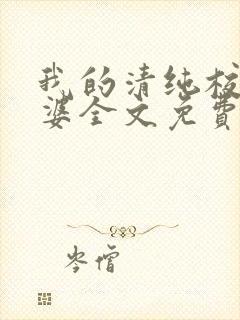 我的清纯校
婆全文免費
岑僧